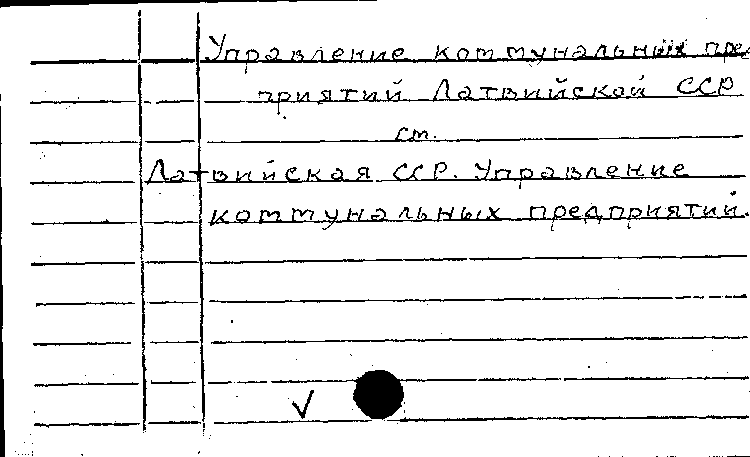 Управление коммунальных пред
приятий Латвийской ССР
см.
Латвийская ССР. Управление
коммунальных предприятий.